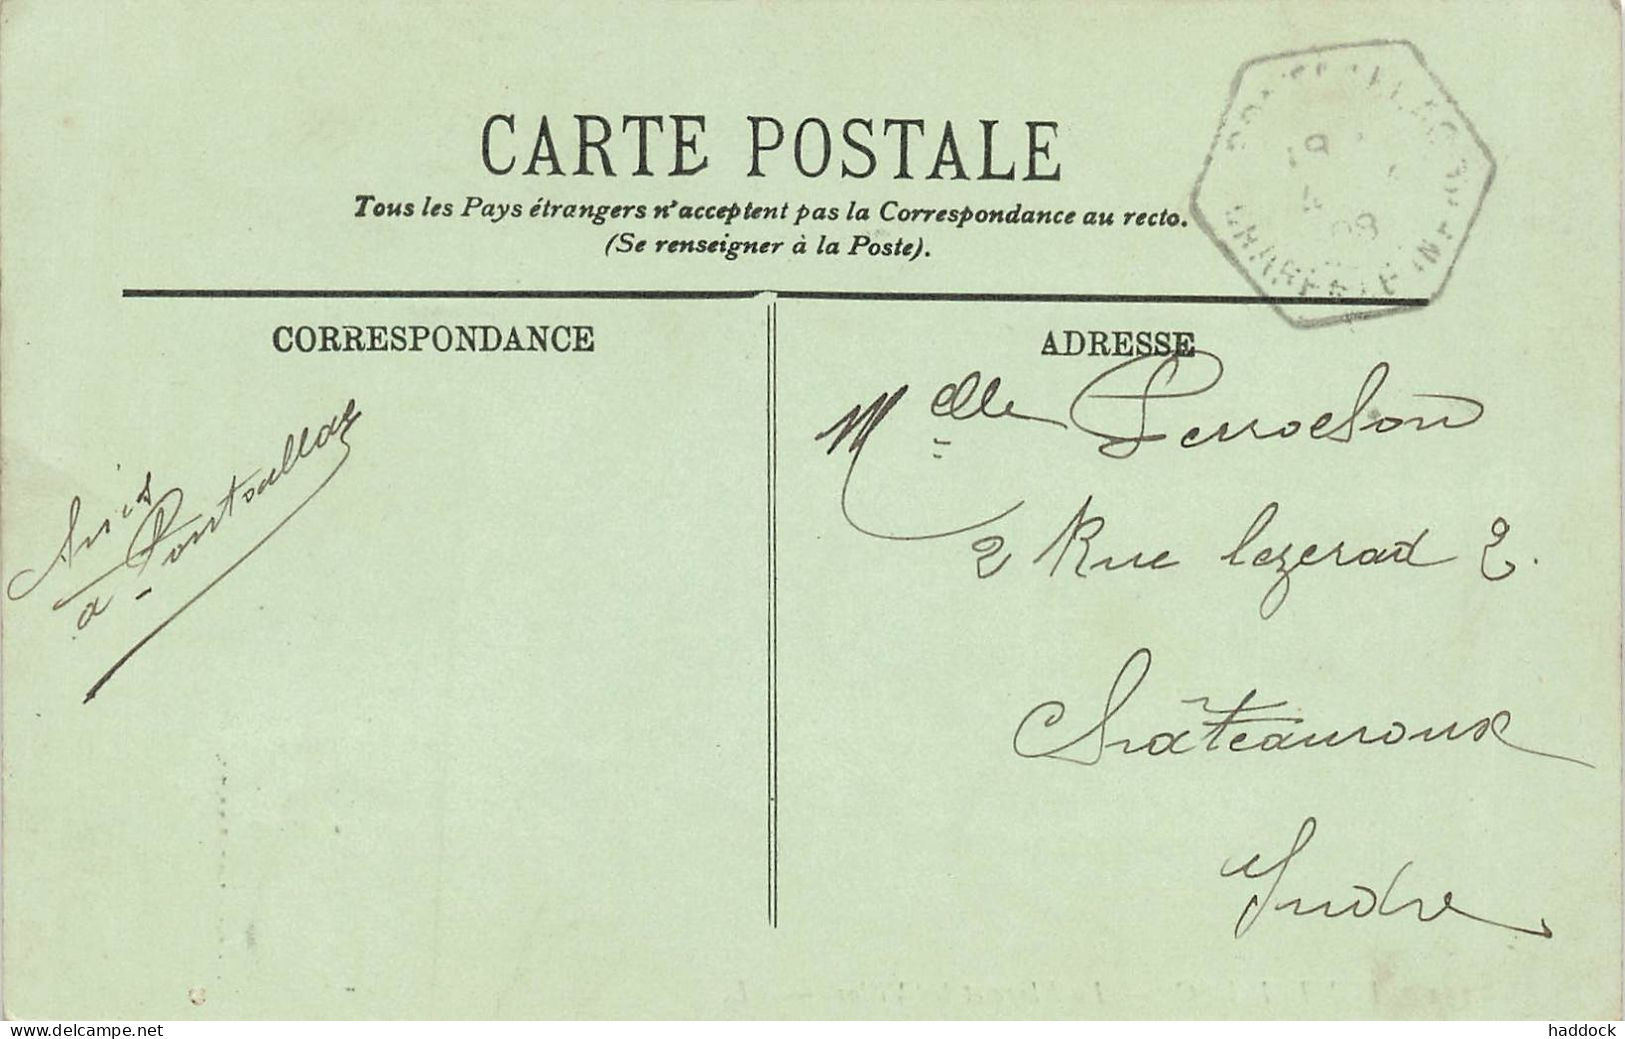 CARTE POSTALE
Tous les Pays étrangers n'acceptent pas la Correspondance au recto.
(Se renseigner à la Poste).
CORRESPONDANCE
ADRESSE
à Pontaillac
Mlle Perrochon
2 Rue Lezerad 2.
Châteauroux
Indre
CHARENTE INF
08
www.delcampe.net
haddock